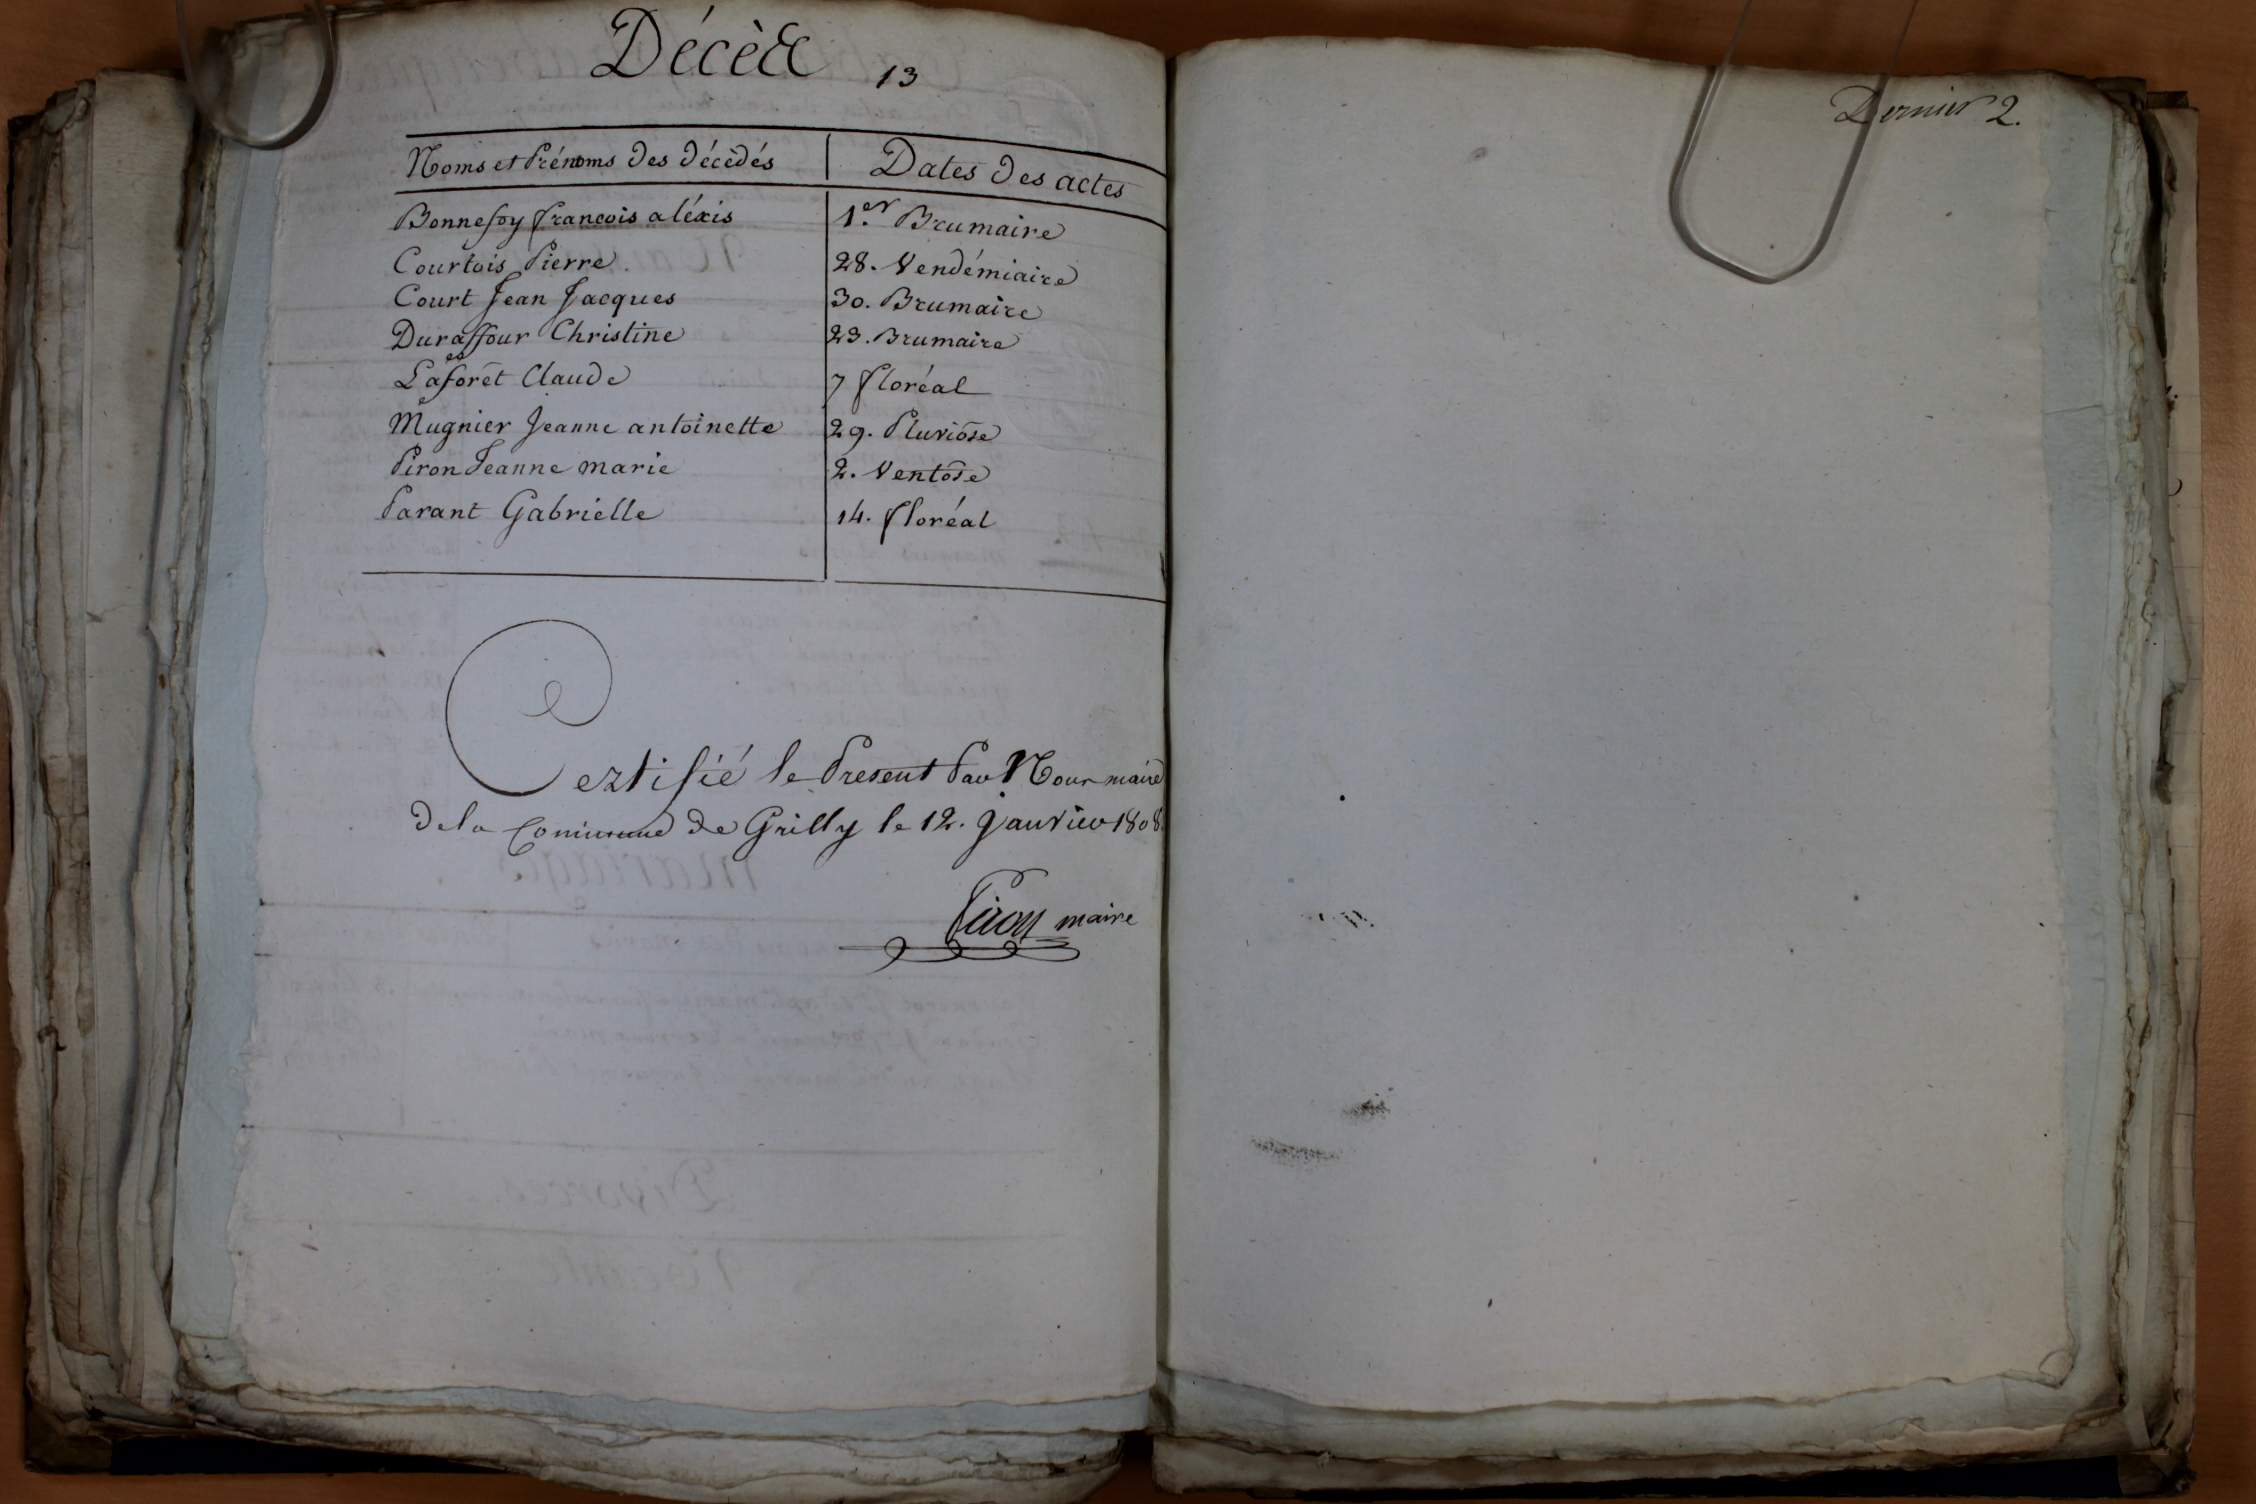 Décès 13
Noms et Prénoms des décèdés | Dates des actes
Bonnefoy françois aléxis | 1.er Brumaire
Courtois Pierre | 28. Vendémiaire
Court Jean Jacques | 30. Brumaire
Duraffour Christine | 23. Brumaire
Laforêt Claude | 7 floréal
Mugnier Jeanne antoinette | 29. Pluviôse
Piron Jeanne marie | 2. Ventôse
Parant Gabrielle | 14. floréal
Certifié le Present Par Nous maire
de la Commune de Grilly le 12. Janvier 1808.
Piron maire
Dernier 2.